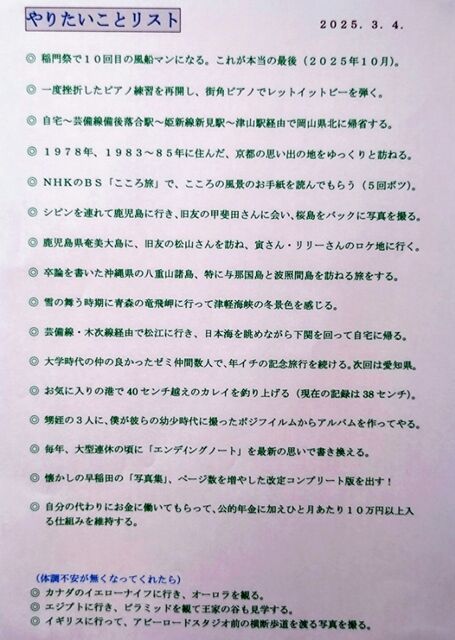 やりたいことリスト
2025.3.4.
◎ 稲門祭で10回目の風船マンになる。これが本当の最後(2025年10月)。
◎ 一度挫折したピアノ練習を再開し、街角ピアノでレットイットビーを弾く。
◎ 自宅～芸備線備後落合駅～姫新線新見駅～津山駅経由で岡山県北に帰省する。
◎ 1978年、1983～85年に住んだ、京都の思い出の地をゆっくりと訪ねる。
◎ NHKのBS「こころ旅」で、こころの風景のお手紙を読んでもらう(5回ボツ)。
◎ シピンを連れて鹿児島に行き、旧友の甲斐田さんに会い、桜島をバックに写真を撮る。
◎ 鹿児島県奄美大島に、旧友の松山さんを訪ね、寅さん・リリーさんのロケ地に行く。
◎ 卒論を書いた沖縄県の八重山諸島、特に与那国島と波照間島を訪ねる旅をする。
◎ 雪の舞う時期に青森の竜飛岬に行って津軽海峡の冬景色を感じる。
◎ 芸備線・木次線経由で松江に行き、日本海を眺めながら下関を回って自宅に帰る。
◎ 大学時代の仲の良かったゼミ仲間数人で、年イチの記念旅行を続ける。次回は愛知県。
◎ お気に入りの港で40センチ越えのカレイを釣り上げる(現在の記録は38センチ)。
◎ 甥姪の3人に、僕が彼らの幼少時代に撮ったポジフイルムからアルバムを作ってやる。
◎ 毎年、大型連休の頃に「エンディングノート」を最新の思いで書き換える。
◎ 懐かしの早稲田の「写真集」、ページ数を増やした改定コンプリート版を出す!
◎ 自分の代わりにお金に働いてもらって、公的年金に加えひと月あたり10万円以上入
る仕組みを維持する。
(体調不安が無くなってくれたら)
◎ カナダのイエローナイフに行き、オーロラを観る。
◎ エジプトに行き、ピラミッドを観て王家の谷も見学する。
◎ イギリスに行って、アビーロードスタジオ前の横断歩道を渡る写真を撮る。